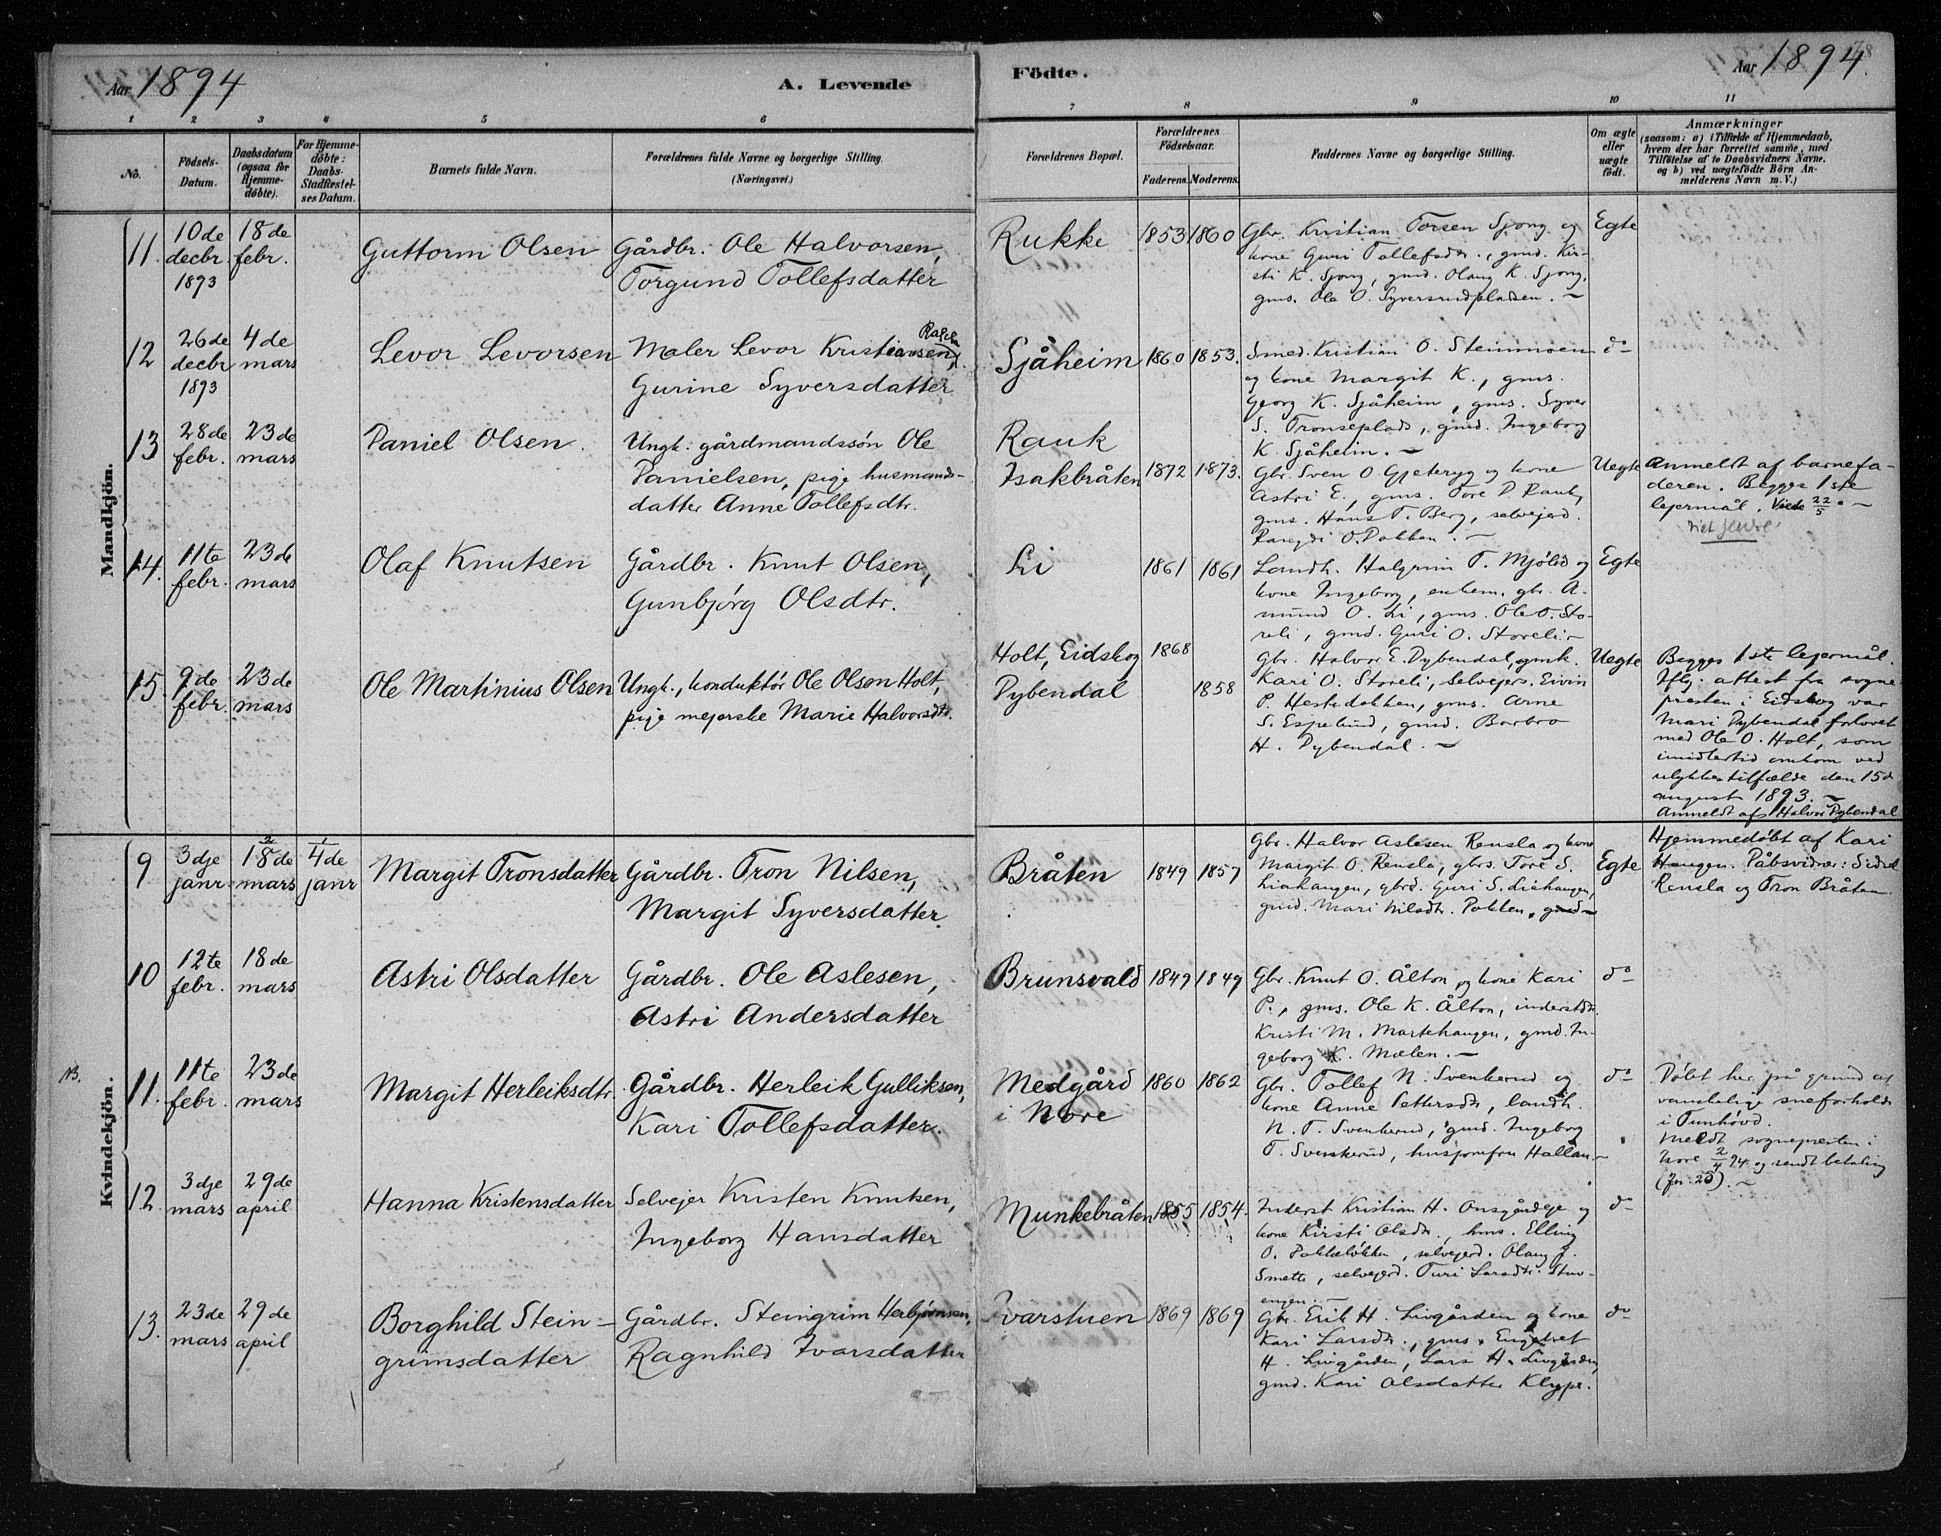 Aar 1894 A. Levende Födte. Aar 1894. 78
1 2 3 4 5 6 7 8 9 10 11
No.
Födsels-
Datum.
Daabsdatum
(ogsaa for
Hjemme-
döbte).
For Hjemme-
döbte:
Daabs-
Stadfæstel-
ses Datum.
Barnets fulde Navn.
Forældrenes fulde Navne og borgerlige Stilling.
(Næringsvei.)
Forældrenes Bopæl.
Forældrenes
Födselsaar.
Faderens. Moderens.
Faddernes Navne og borgerlige Stilling.
Om ægte
eller
uægte
födt.
Anmærkninger
(saasom: a) i Tilfælde af Hjemmedaab,
hvem der har forrettet samme, med
Tilföielse af to Daabsvidners Navne.
og b) ved uægtefödte Börn An-
melderens Navn m. V.)
Mandkjön.
11. 10de decbr. 1893 18de febr.
Guttorm Olsen
Gårdbr. Ole Halvorsen,
Torgund Tollefsdatter
Rukke 1853 1860
Gbr. Kristian Torsen Sjong og
kone Guri Tollefsdr., gmd. Kir-
sti K. Sjong, gmd. Olaug K. Sjong,
gms. Ole O. Syversrudpladsen. ~
Egte
12 26de decbr 1893 4de mars
Levor Levorsen
Maler Levor Kristiansen,
Gurine Syversdatter
Sjåheim 1860 1853.
Smed. Kristian O. Steinmoen
og kone Margit K., gms.
Georg K. Sjåheim, gms. Syver
S. Tronseplads, gmd. Ingeborg
K. Sjåheim. ~
do
13 28de febr. 23de mars
Daniel Olsen.
Ungk: gårdmandssøn Ole
Danielsen, pige husmands-
datter Anne Tollefsdtr.
Rauk
Isakbråten 1872 1873.
Gbr. Sven O Gjeteryg og kone
Astri E., gms. Tore D. Rauk,
gms. Hans T. Berg, selvejerd.
O. Dokken. ~
Uegte
Anmeldt af barnefa-
deren. Begges 1ste
lejermål. Viede 22/5. ~
14. 11te febr. 23de mars
Olaf Knutsen
Gårdbr. Knut Olsen,
Gunbjørg Olsdtr.
Li 1861 1861
Landh. Halgrim T. Mjølid og
kone Ingeborg, enkem. gbr. A-
mund O. Li, gms. Ole O. Sto-
reli, gmd. Guri O. Storeli ~
Egte
15. 9de febr. 23de mars
Ole Martinius Olsen
Ungk., konduktör Ole Olsen Holt,
pige mejerske Marie Halvorsdtr.
Holt, Eidskog 1868
Dybendal 1858
Gbr. Halvor E. Dybendal, gmk.
Kari O. Storeli, selvejers. Eivin
P. Hestedokken, gms. Arne
S. Espelund, gmd. Barbro
H. Dybendal. ~
Uegte
Begges 1ste lejermål.
Iflg. attest fra sogne
presten i Eidskog var
Mari Dybendal forlovet
med Ole O. Holt, som
imidlertid omkom ved
ulykkestilfælde den 15de
august 1893. ~
Anmeldt af Halvor Dybendal
Kvindekjön.
9 3dje janr. 18de mars 4de janr
Margit Tronsdatter
Gårdbr. Tron Nilsen,
Margit Syversdatter.
Bråten 1849 1857
Gbr. Halvor Aslesen Rensla og kone
Margit O. Rensla, gbrs. Tore S.
Liahaugen, gbrd. Guri S. Liahaugen,
gmd. Mari Nilsdtr. Dokken, gmd ~
Egte
Hjemmedøbt af Kari
Haugen. Dåbsvidner: Sidsel
Rensla og Tron Bråten.
10 12te febr. 18de mars
Astri Olsdatter
Gårdbr. Ole Aslesen,
Astri Andersdatter
Brunsvald 1849 1849
Gbr. Knut O. Ålton og kone Kari
P., gms. Ole K. Ålton, inderstdr.
Kristi M. Martehaugen, gmd. In-
geborg K. Mælen. ~
do
NB.
11. 11te febr. 23de mars
Margit Herleiksdtr.
Gårdbr. Herleik Gulliksen,
Kari Tollefsdatter.
Medgård
i Nore 1860 1862
Gbr. Tollef N. Svenkerud og
kone Anne Pettersdtr, landh.
N. T. Svenkerud, gmd. Ingeborg
T. Svenkerud, husjomfru Hallan. ~
do
Døbt her på grund af
vanskelige sneforholde
i Tunhövd.
Meldt sognepresten i
Nore 2/4 94 og sendt betaling
(Jn. 25). ~
12. 3dje mars 29de april
Hanna Kristensdatter
Selvejer Kristen Knutsen,
Ingeborg Hansdatter
Munkebråten 1855 1854.
Inderst Kristian H. Onsgårdeje og
kone Kirsti Olsdr., hms. Elling
O. Dokkeløkken, selvejerd. Olaug J.
Smette, selvejerd. Turi Larsdtr. Stuv-
engen. ~
do
13. 23de mars 29de april
Borghild Stein-
grimsdatter
Gårdbr. Steingrim Herbjørnsen,
Ragnhild Ivarsdatter
Ivarstuen 1869 1869
Gbr. Erik H. Livgården og kone
Kari Larsdtr., gms. Engebret
H. Livgården, Lars H. Livgården,
gmd. Kari Olsdatter Klype.
do